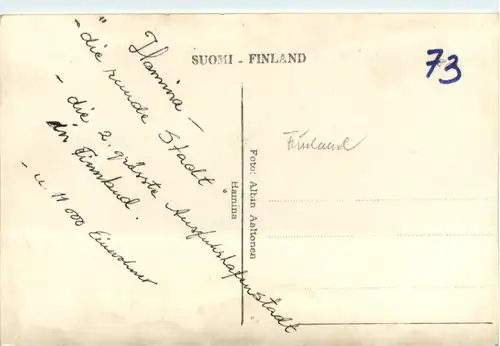 Hamina -
"die runde Stadt
- die 2. grösste Ausfuhrhafenstadt
in Finnland.
- u. 11 000 Einwohner
SUOMI - FINLAND
73
Finland
Foto: Albin Aaltonen
Hamina